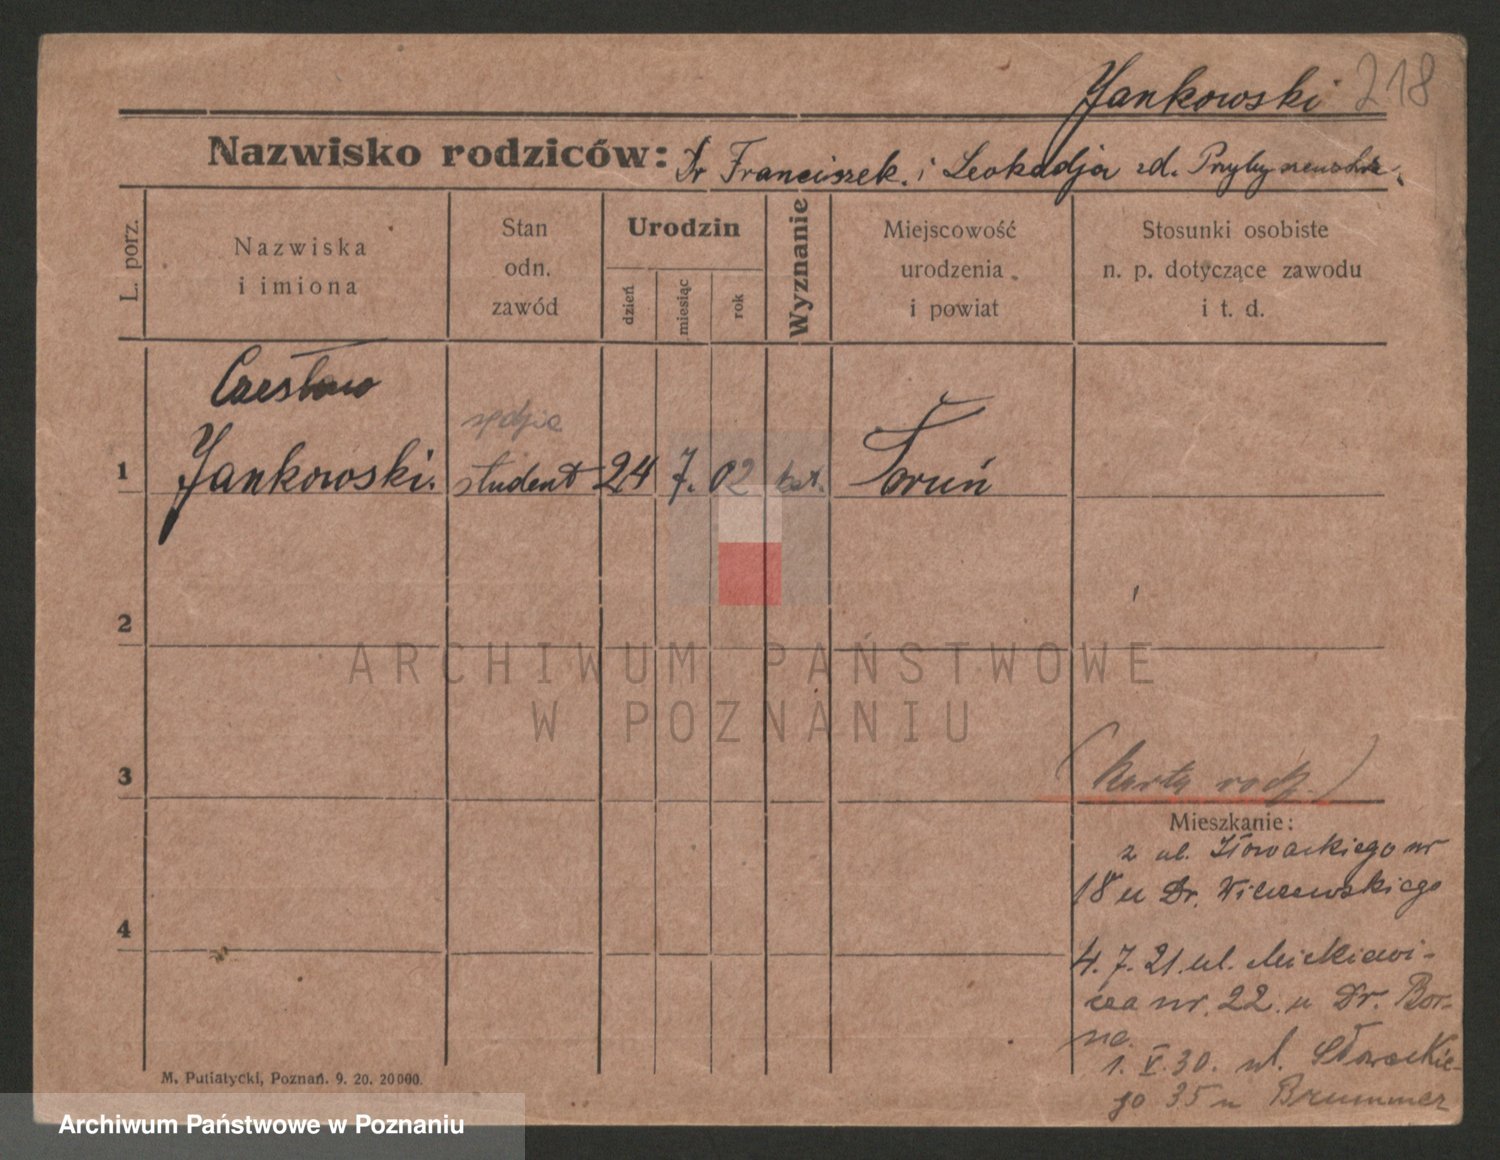 Jankowski 218
Nazwisko rodziców: Dr Franciszek i Leokadja zd.
L. porz.
Nazwiska
i imiona
Stan
odn.
zawód
Urodzin
dzień
miesiąc
rok
Wyznanie
Miejscowość
urodzenia
i powiat
Stosunki osobiste
n. p. dotyczące zawodu
i t. d.
Czesław
sędzia
1 Jankowski. student 24 7. 02 kat. Toruń
2
ARCHIWUM PAŃSTWOWE
W POZNANIU
3
(Karta rodz.)
Mieszkanie:
z ul. Słowackiego nr
18 u Dr. Wilczewskiego
4
4. 7. 21. ul. Mickiewi-
cza nr. 22. u Dr. Bor-
na.
1. V. 30. ul. Słowackie-
go 35 u Brummer
M. Putiatycki, Poznań. 9. 20. 20000.
Archiwum Państwowe w Poznaniu